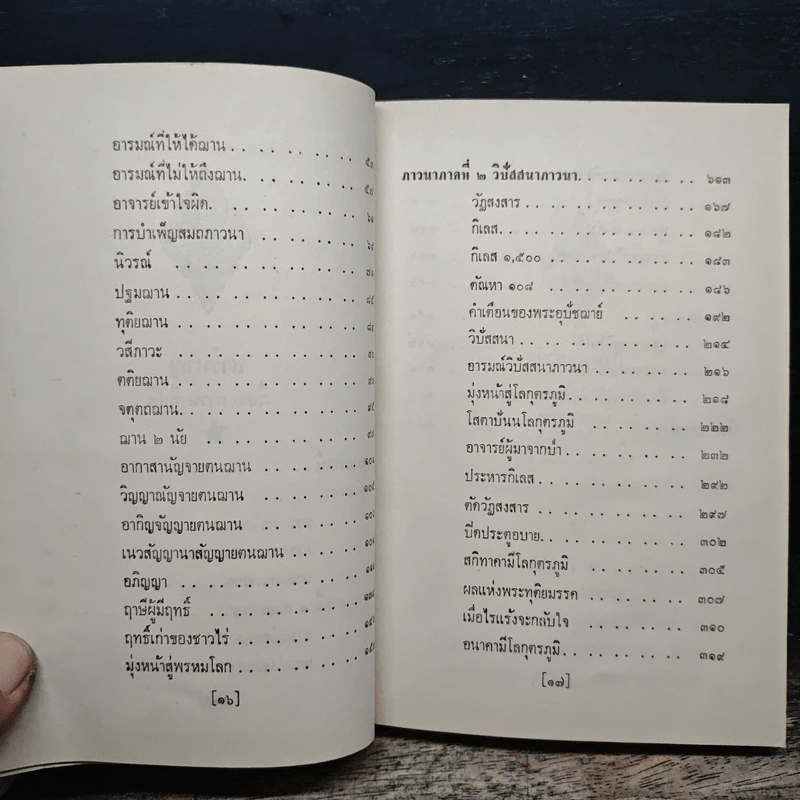 อารมณ์ที่ให้ได้ฌาน . . . . . . . . ๕๓
อารมณ์ที่ไม่ให้ถึงฌาน. . . . . . . .
อาจารย์เข้าใจผิด. . . . . . . . . ๖๑
การบำเพ็ญสมถภาวนา . . . . . . . . ๖๙
นิวรณ์ . . . . . . . . . ๗๑
ปฐมฌาน . . . . . . . . . ๘๕
ทุติยฌาน . . . . . . . . .
วสีภาวะ . . . . . . . . .
ตติยฌาน . . . . . . . . .
จตุตถฌาน. . . . . . . . .
ฌาน ๒ นัย . . . . . . . . .
อากาสานัญจายตนฌาน . . . . . . .
วิญญาณัญจายตนฌาน . . . . . . .
อากิญจัญญายตนฌาน . . . . . . .
เนวสัญญานาสัญญายตนฌาน . . . . . .
อภิญญา . . . . . . . . .
ฤาษีผู้มีฤทธิ์ . . . . . . . . .
ฤทธิ์เก่าของชาวไร่ . . . . . . . .
มุ่งหน้าสู่พรหมโลก . . . . . . . .
[๑๖]
ภาวนาภาคที่ ๒ วิปัสสนาภาวนา. . . . . . . . . ๖๑๓
วัฏสงสาร . . . . . . . . . ๑๖๗
กิเลส. . . . . . . . . . ๑๘๒
กิเลส ๑,๕๐๐ . . . . . . . . . ๑๘๓
ตัณหา ๑๐๘ . . . . . . . . . ๑๘๖
คำเตือนของพระอุปัชฌาย์ . . . . . . ๑๙๒
วิปัสสนา . . . . . . . . . ๒๑๔
อารมณ์วิปัสสนาภาวนา . . . . . . . ๒๑๖
มุ่งหน้าสู่โลกุตรภูมิ . . . . . . . . ๒๑๘
โสดาปันนโลกุตรภูมิ . . . . . . . . ๒๒๒
อาจารย์ผู้มาจากป่า . . . . . . . . ๒๓๒
ประหารกิเลส . . . . . . . . . ๒๙๒
ตัดวัฏสงสาร . . . . . . . . . ๒๙๗
ปิดประตูอบาย. . . . . . . . . ๓๐๒
สกิทาคามีโลกุตรภูมิ . . . . . . . . ๓๐๕
ผลแห่งพระทุติยมรรค . . . . . . . . ๓๐๗
เมื่อไรแร้งจะกลับใจ . . . . . . . . ๓๑๐
อนาคามีโลกุตรภูมิ. . . . . . . . . ๓๑๙
[๑๗]